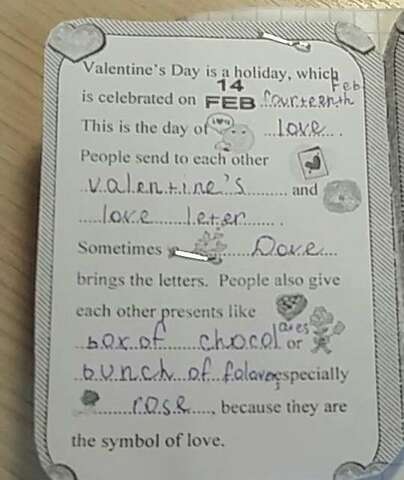 Valentine's Day is a holiday, which
is celebrated on 14 FEB fourteenth Feb.
This is the day of love.
People send to each other
valentine's and
love leter.
Sometimes Dove
brings the letters. People also give
each other presents like
box of chocolates or
bunch of especially
rose, because they are
the symbol of love.